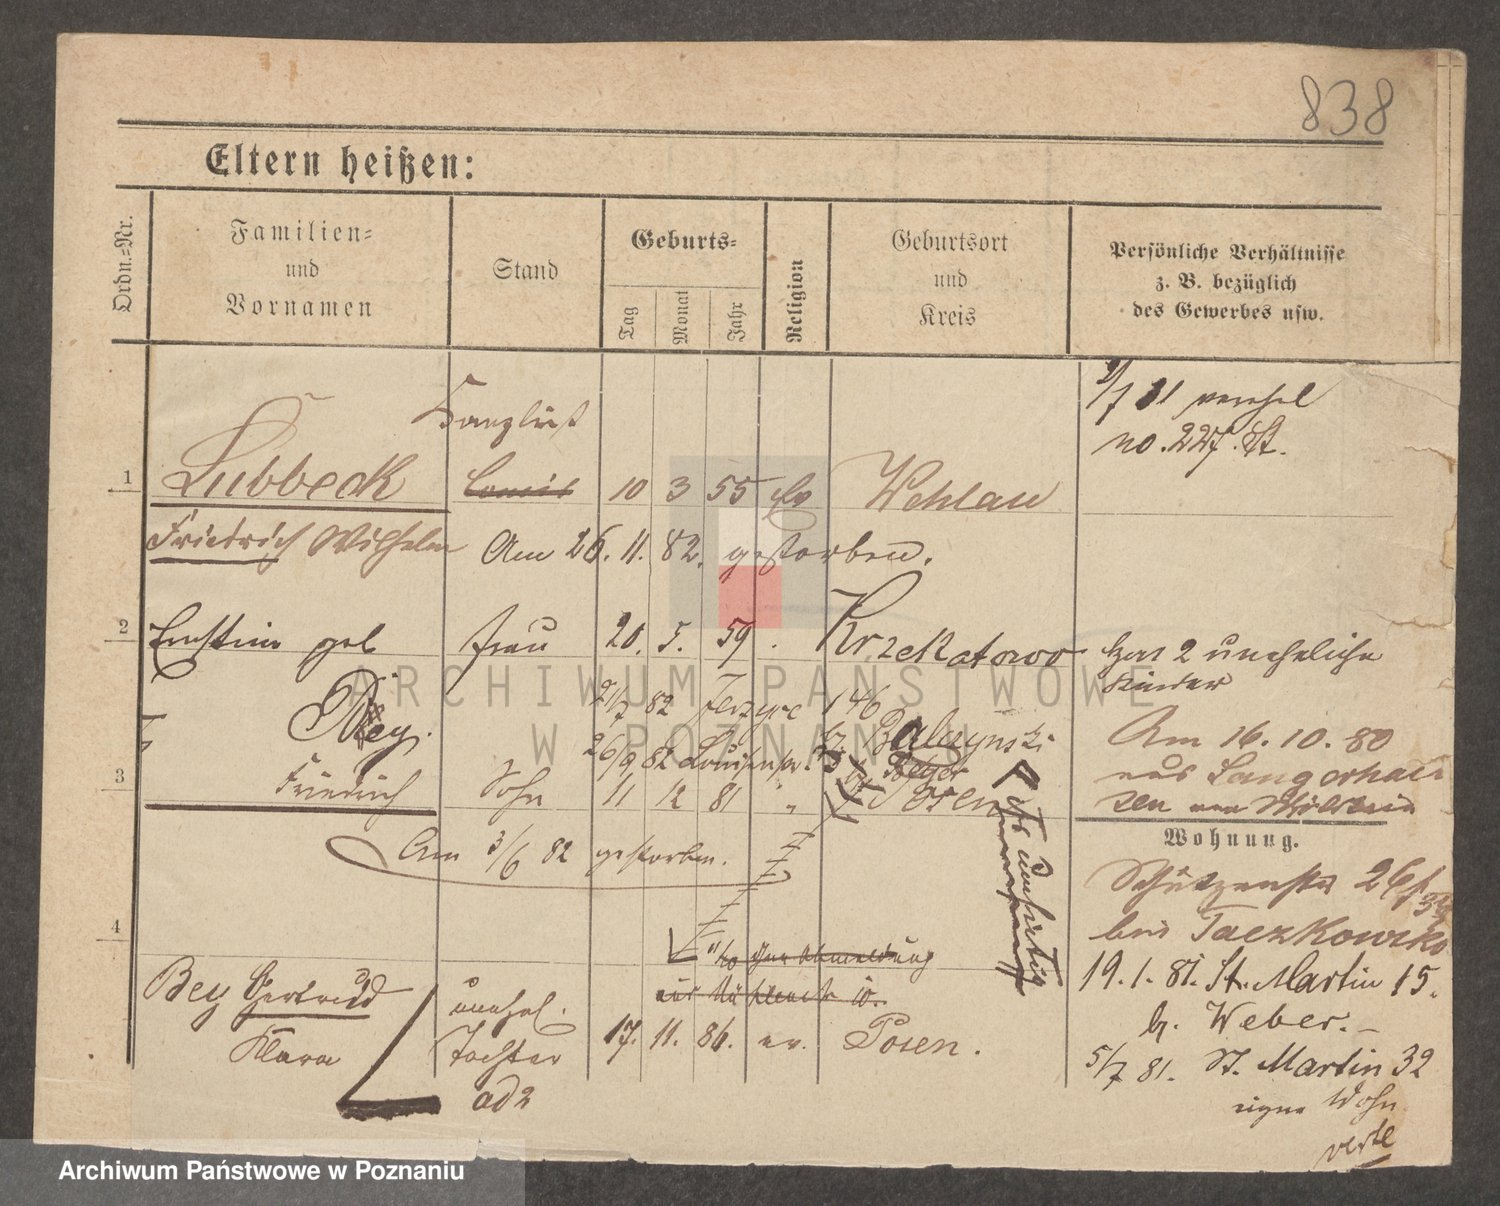 838
Eltern heißen:
Ordn.-Nr.
Familien-
und
Vornamen
Stand
Geburts-
Tag
Monat
Jahr
Religion
Geburtsort
und
Kreis
Persönliche Verhältnisse
z. B. bezüglich
des Gewerbes usw.
Kanzlist
1/7 81 verehel
no. 227. St.
1 Lubbeck 10 3 55 Ev Wehlau
Friedrich Wilhelm Am 26. 11. 82. gestorben.
2 Ernstine geb Frau 20. 5. 59 Krzekotowo hat 2 uneheliche
Kinder
Bey. 21/7 82 Jerzyce 146
26/9 82 Louisenstr.
Am 16. 10. 80
aus Sangerhau
sen
3 Friedrich Sohn 11 12 81 " Posen
Wohnung.
Am 3/6 82 gestorben.
Schützenstr 26
bei Taczkowski
4
Abmeldung
19. 1. 81. St. Martin 15.
b. Weber.
Bey Gertrud unehel.
Klara Tochter 17. 11. 86. ev. Posen.
ad 2
5/7 81. St. Martin 32
eigne Wohn
verte
ARCHIWUM PAŃSTWOWE
W POZNANIU
Archiwum Państwowe w Poznaniu